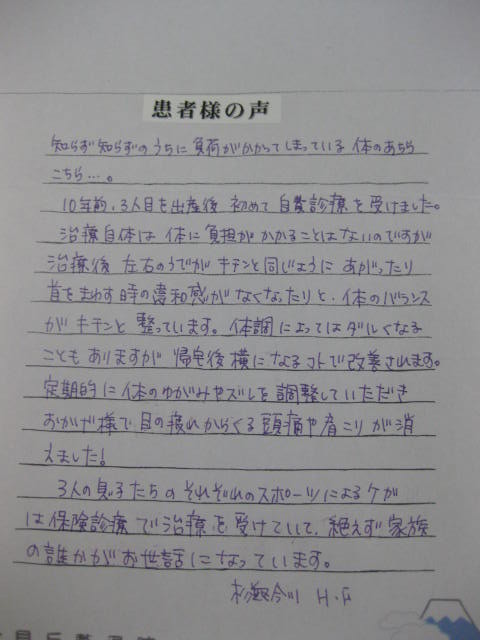 患者様の声
知らず知らずのうちに負荷がかかってしまっている体のあちら
こちら…。
10年前、3人目を出産後 初めて自費診療を受けました。
治療自体は体に負担がかかることはないのですが
治療後 左右のうでがキチンと同じようにあがったり
首をまわす時の違和感がなくなったりと、体のバランス
がキチンと整っています。体調によってはダルくなる
こともありますが 帰宅後横になるコトで改善されます。
定期的に体のゆがみやズレを調整していただき
おかげ様で目の疲れからくる頭痛や肩こりが消
えました!
3人の息子たちのそれぞれのスポーツによるケガ
は保険診療で治療を受けていて、絶えず家族
の誰かがお世話になっています。
H.F